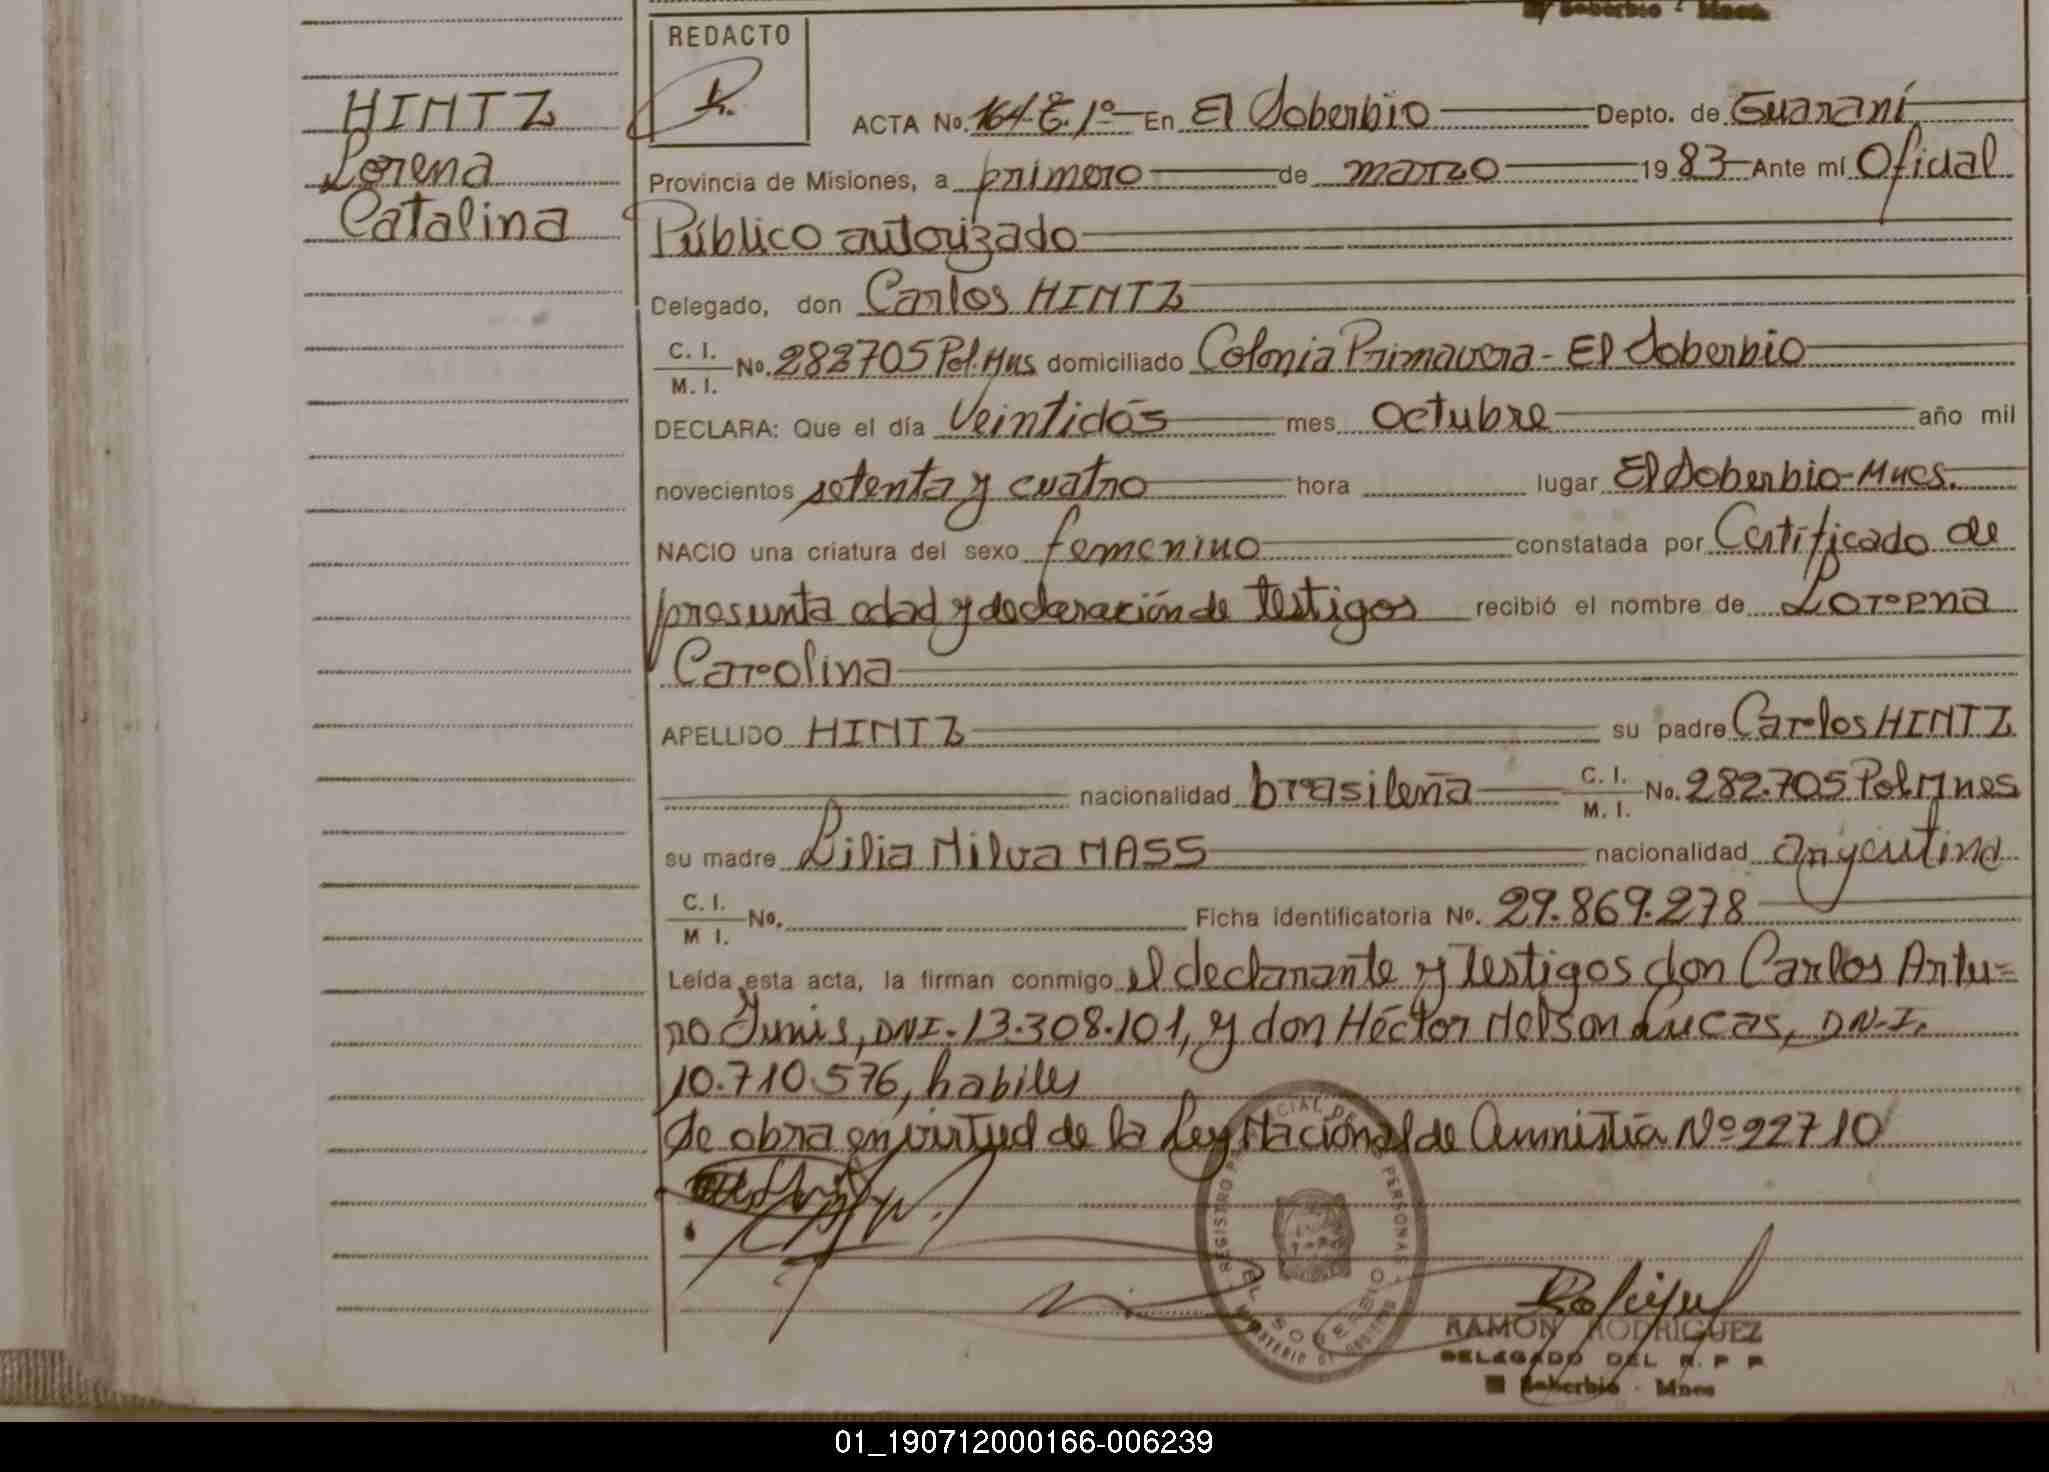 El Soberbio - Mnes.
REDACTO
HINTZ
Lorena
Catalina
ACTA No. 164 E. 1º En El Soberbio Depto. de Guaraní
Provincia de Misiones, a primero de marzo 1983 Ante mí Oficial
Público autorizado
Delegado, don Carlos HINTZ
C. I.
M. I. No. 282705 Pol. Mns domiciliado Colonia Primavera - El Soberbio
DECLARA: Que el día Veintidós mes octubre año mil
novecientos setenta y cuatro hora lugar El Soberbio - Mnes.
NACIO una criatura del sexo femenino constatada por Certificado de
presunta edad y declaración de testigos recibió el nombre de Lorena
Carolina
APELLIDO HINTZ su padre Carlos HINTZ
nacionalidad brasileña C. I.
M. I. No. 282.705 Pol Mnes
su madre Lilia Milva MASS nacionalidad argentina
C. I.
M I. No. Ficha identificatoria No. 29.869.278
Leída esta acta, la firman conmigo el declarante y testigos don Carlos Artu=
ro Junis, DNI. 13.308.101, y don Héctor Nelson Lucas, D.N.I.
10.710.576, habiles
Se obra en virtud de la Ley Nacional de Amnistía Nº 22710
REGISTRO PROVINCIAL DE PERSONAS
EL SOBERBIO
MINISTERIO DE GOBIERNO
RAMON RODRIGUEZ
DELEGADO DEL R. P. P.
El Soberbio - Mnes
01_190712000166-006239